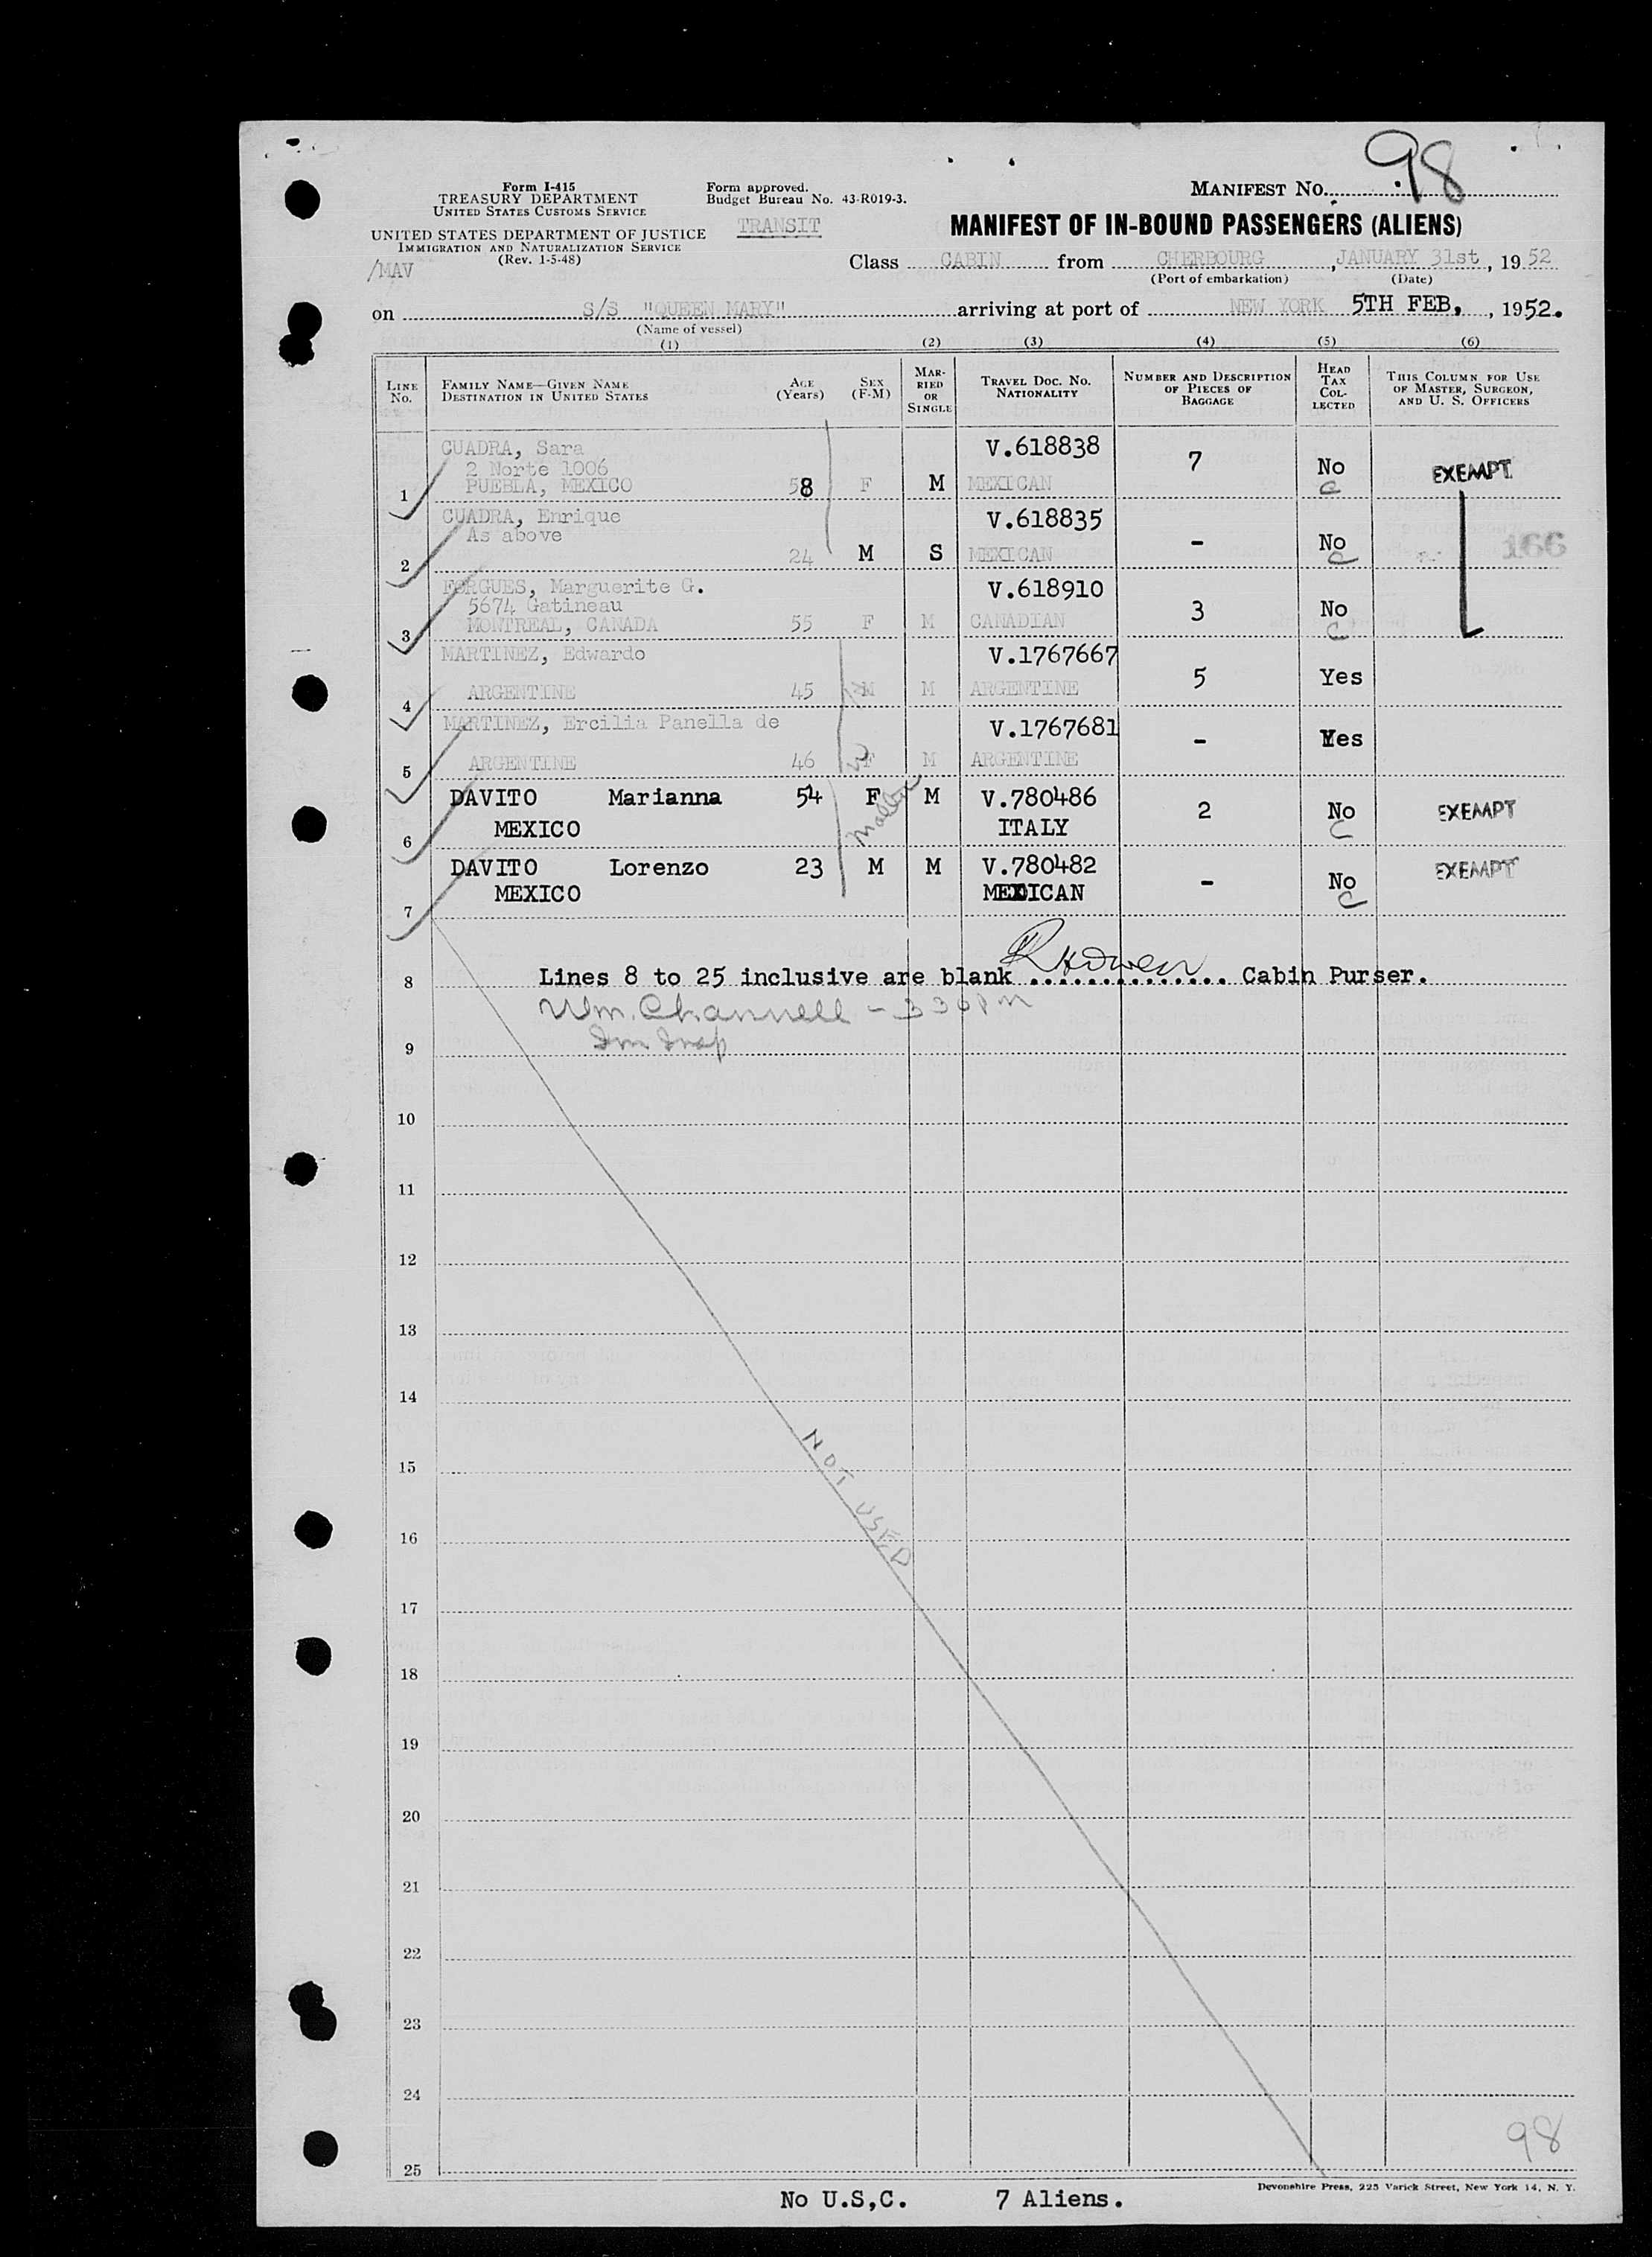 98
Form I-415
TREASURY DEPARTMENT
UNITED STATES CUSTOMS SERVICE
UNITED STATES DEPARTMENT OF JUSTICE
IMMIGRATION AND NATURALIZATION SERVICE
(Rev. 1-5-48)
/MAV
Form approved.
Budget Bureau No. 43-R019-3.
TRANSIT
MANIFEST No.
MANIFEST OF IN-BOUND PASSENGERS (ALIENS)
Class CABIN from CHERBOURG, JANUARY 31st, 1952
(Port of embarkation) (Date)
on S/S "QUEEN MARY" arriving at port of NEW YORK 5TH FEB., 1952.
(Name of vessel)
(1) (2) (3) (4) (5) (6)
LINE No. FAMILY NAME—GIVEN NAME DESTINATION IN UNITED STATES AGE (Years) SEX (F-M) MARRIED OR SINGLE TRAVEL DOC. NO. NATIONALITY NUMBER AND DESCRIPTION OF PIECES OF BAGGAGE HEAD TAX COLLECTED THIS COLUMN FOR USE OF MASTER, SURGEON, AND U. S. OFFICERS
CUADRA, Sara V.618838
2 Norte 1006 7 No EXEMPT
1 PUEBLA, MEXICO 58 F M MEXICAN C
CUADRA, Enrique V.618835
As above - No 166
2 24 M S MEXICAN C
FORGUES, Marguerite G. V.618910
5674 Gatineau 3 No
3 MONTREAL, CANADA 55 F M CANADIAN C
MARTINEZ, Edwardo V.1767667
4 ARGENTINE 45 M M ARGENTINE 5 Yes
MARTINEZ, Ercilia Panella de V.1767681
5 ARGENTINE 46 F M ARGENTINE - Yes
DAVITO Marianna 54 F M V.780486 2 No EXEMPT
6 MEXICO ITALY C
DAVITO Lorenzo 23 M M V.780482 - No EXEMPT
7 MEXICO MEXICAN C
8 Lines 8 to 25 inclusive are blank Cabin Purser.
Wm. Channell - 330 PM
9 Im Insp
10
11
12
13
14
15
NOT USED
16
17
18
19
20
21
22
23
24
98
25
Devonshire Press, 225 Varick Street, New York 14, N. Y.
No U.S,C. 7 Aliens.